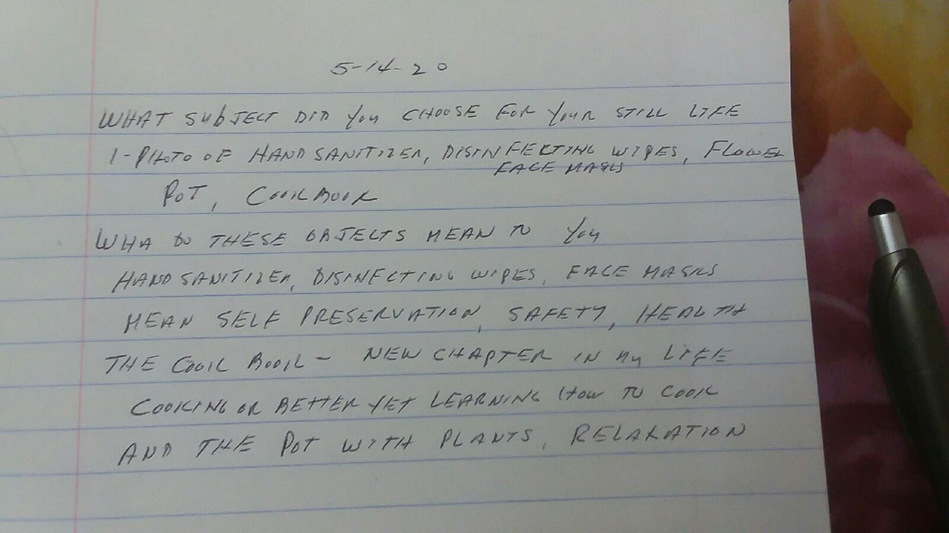 5-14-20
WHAT SUBJECT DID YOU CHOOSE FOR YOUR STILL LIFE
1-PHOTO OF HAND SANITIZER, DISINFECTING WIPES, FLOWER
FACE MASKS
POT, COOK BOOK
WHA DO THESE OBJECTS MEAN TO YOU
HAND SANITIZER, DISINFECTING WIPES, FACE MASKS
MEAN SELF PRESERVATION, SAFETY, HEALTH
THE COOK BOOK - NEW CHAPTER IN MY LIFE
COOKING OR BETTER YET LEARNING HOW TO COOK
AND THE POT WITH PLANTS, RELAXATION